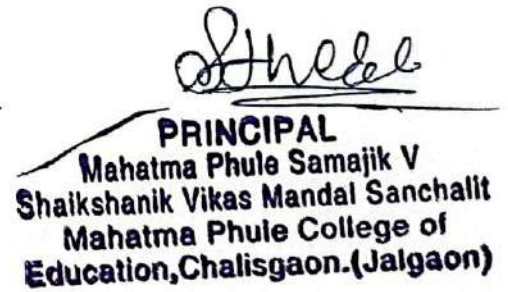 PRINCIPAL
Mahatma Phule Samajik V
Shaikshanik Vikas Mandal Sanchalit
Mahatma Phule College of
Education,Chalisgaon.(Jalgaon)